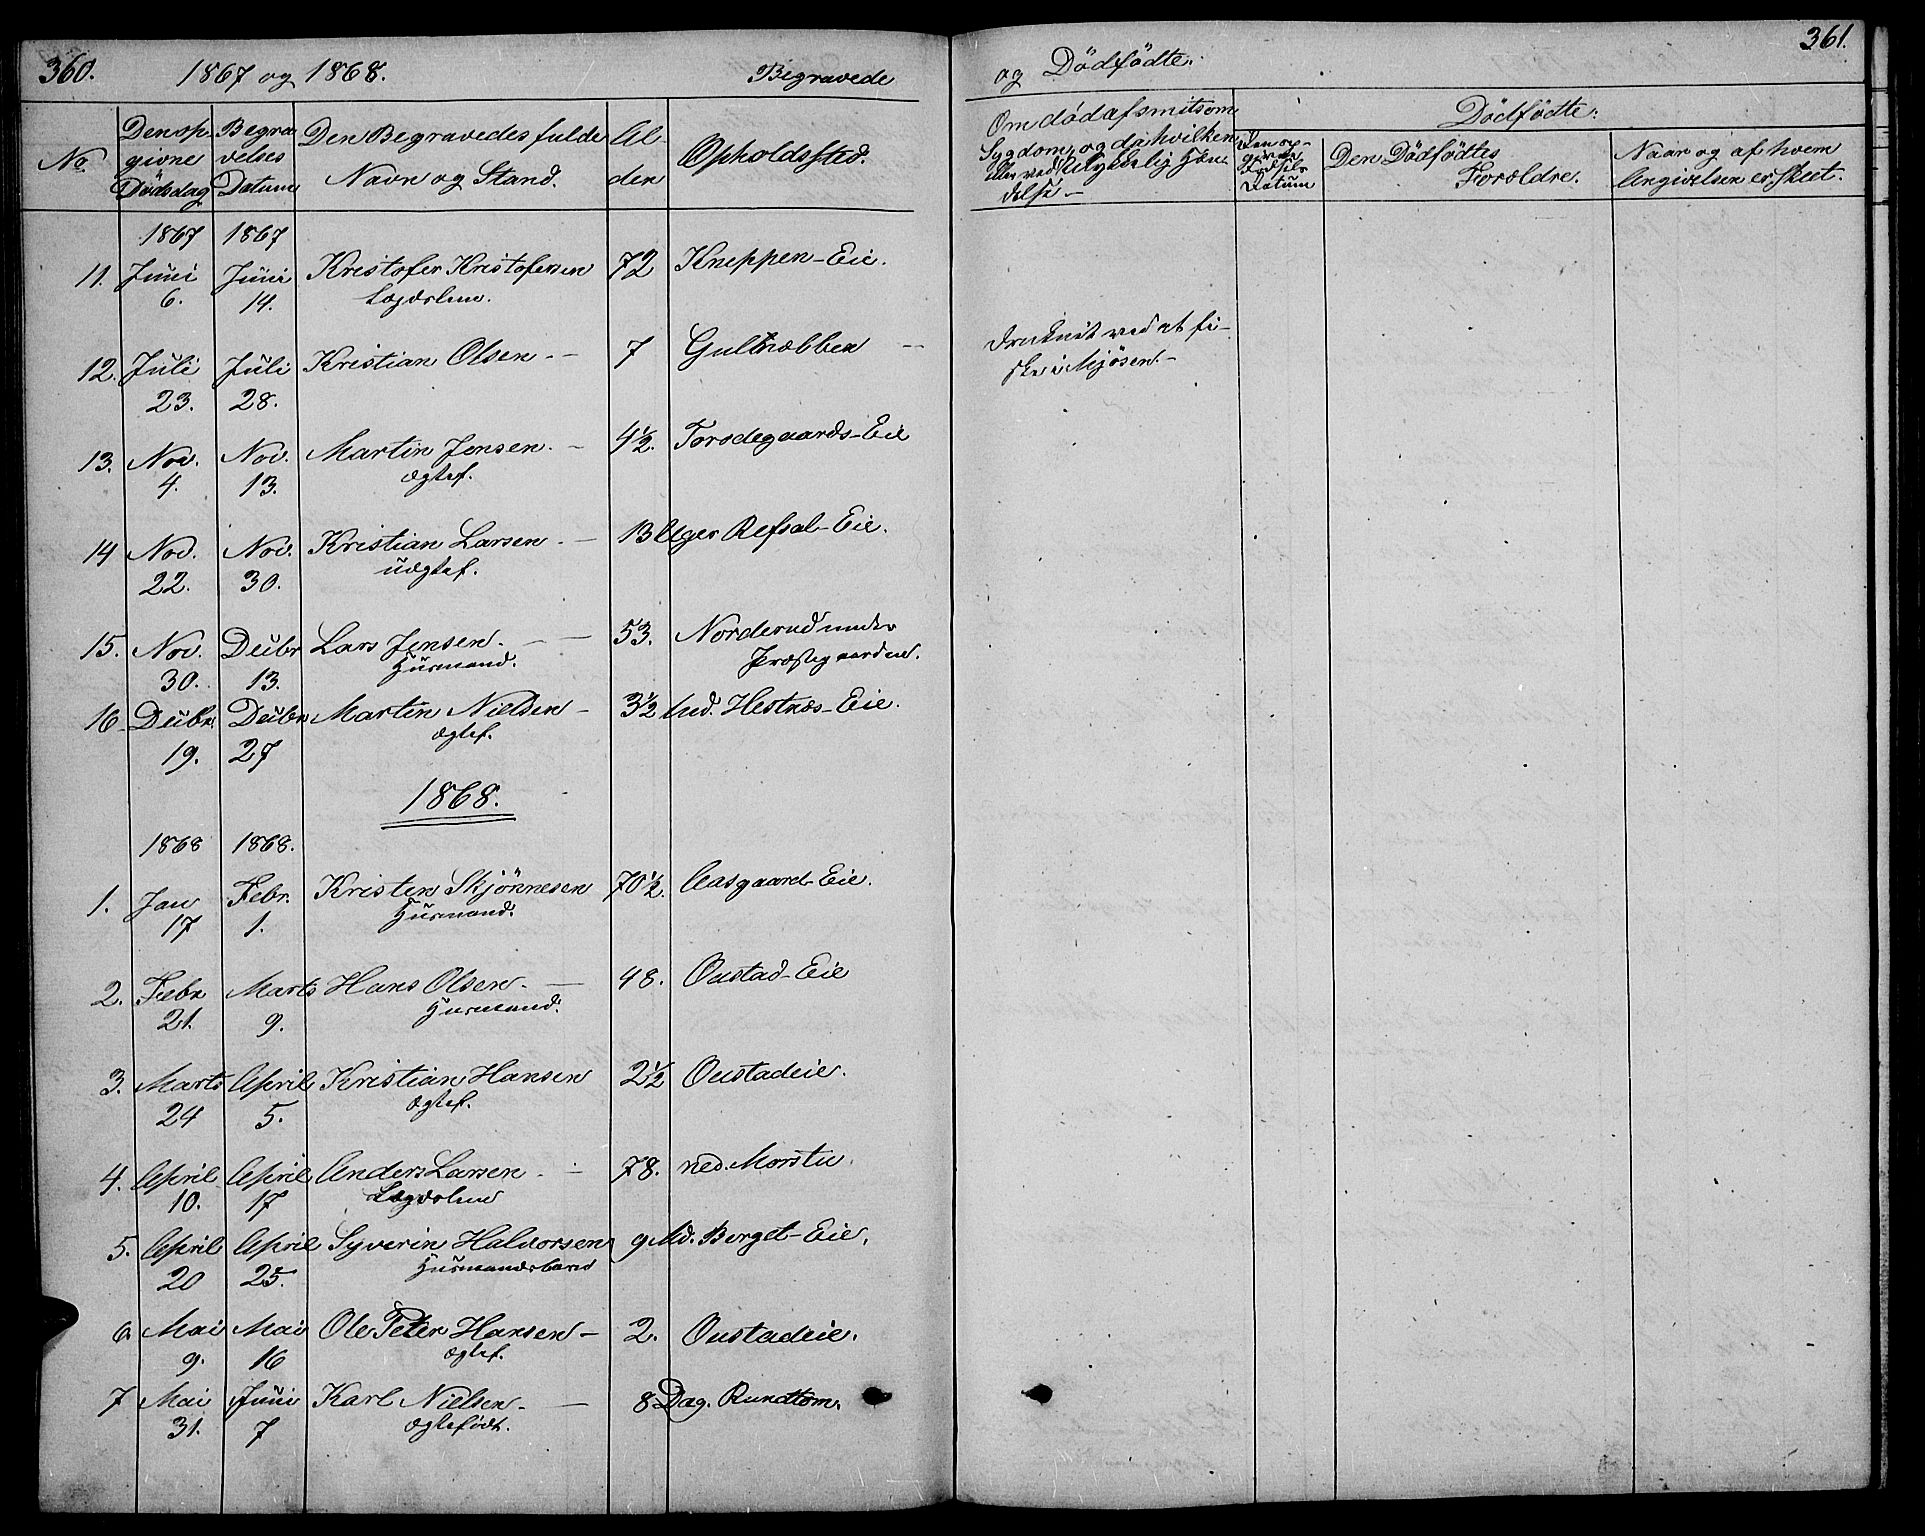 360. 1867 og 1868. Begravede
No. Den op-givne Dødsdag Begra-velses Datum Den Begravedes fulde Navn og Stand. Al-der Opholdssted.
1867 1867
11. Juni 6. Juni 14. Kristofer Kristofersen 72 Kneppen-Eie.
Lægdslem.
12. Juli 23. Juli 28. Kristian Olsen - - 7 Gulnæbben -
13. Nov. 4. Nov. 13. Martin Jensen. - 4½. Torsdegaards-Eie
ægtef.
14 Nov. 22. Nov. 30. Kristian Larsen. - 13 Uger Refsal-Eie.
uægtef.
15. Nov. 30. Decbr 13. Lars Jensen. - - 53. Norderud under
Husmand. Præstegaarden.
16 Decbr. 19. Decbr 27 Martin Nielsen - 3½ Md. Hestnæs-Eie.
ægtef.
1868.
1868 1868.
1. Jan 17 Febr. 1. Kristen Skjönnesen 70½. Aasgaard-Eie.
Husmand.
2. Febr 21. Marts 9. Hans Olsen. - 48. Oustad-Eie
Husmand.
3. Marts 24 April 5. Kristian Hansen 2½ Oustadeie.
ægtef.
4. April 10. April 17 Anders Larsen - - 78. ned. Morstu.
Lægdslem
5. April 20 April 25. Syverin Halvorsen 9 Md. Berget-Eie.
Husmandsbarn
6 Mai 9. Mai 16 Ole Peter Hansen - 2. Oustadeie.
ægtef.
7 Mai 31. Juni 7 Karl Nielsen. - 8 Dag. Rundtom.
ægtefödt.
og Dödfödte. 361.
Om död af smitsom
Sygdom, og da hvilken,
eller ved ulykkelig Hæn-
delse -
Dödfödte:
Den op-givne Födsels Datum Den Dödfödtes Forældre. Naar og af hvem Angivelsen er skeet.
druknet ved at fi-
ske i Mjösen. -